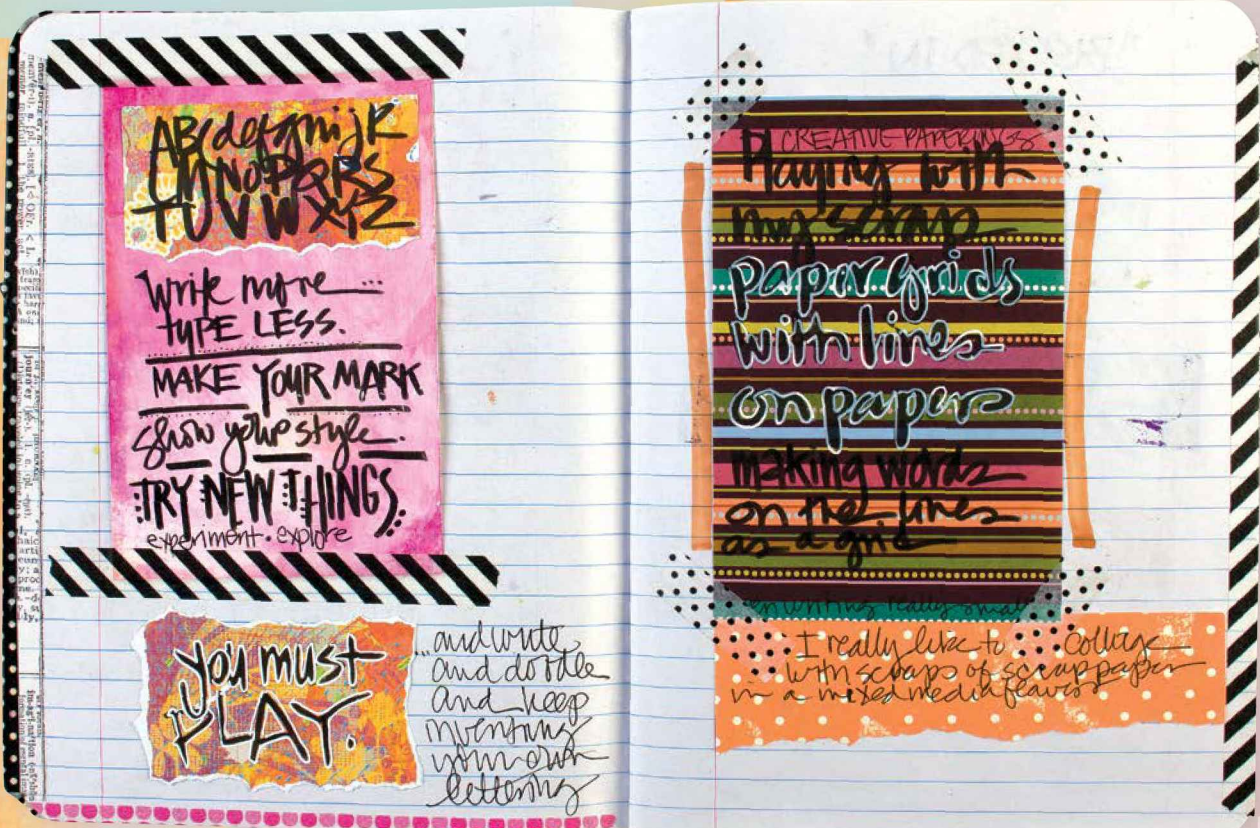 ABCdefghijK
LMNOPQRS
TUVWXYZ
Write more...
TYPE LESS.
MAKE YOUR MARK
show your style.
TRY NEW THINGS.
experiment • explore
you must
PLAY.
...and write
and doodle
and keep
inventing
your own
lettering
CREATIVE PAPERINGS
Playing with
my scrap
paper grids
with lines
on papers
making words
on the lines
as a grid
writing really small
I really like to collage
with scraps of scrap paper
in a mixed media flavor